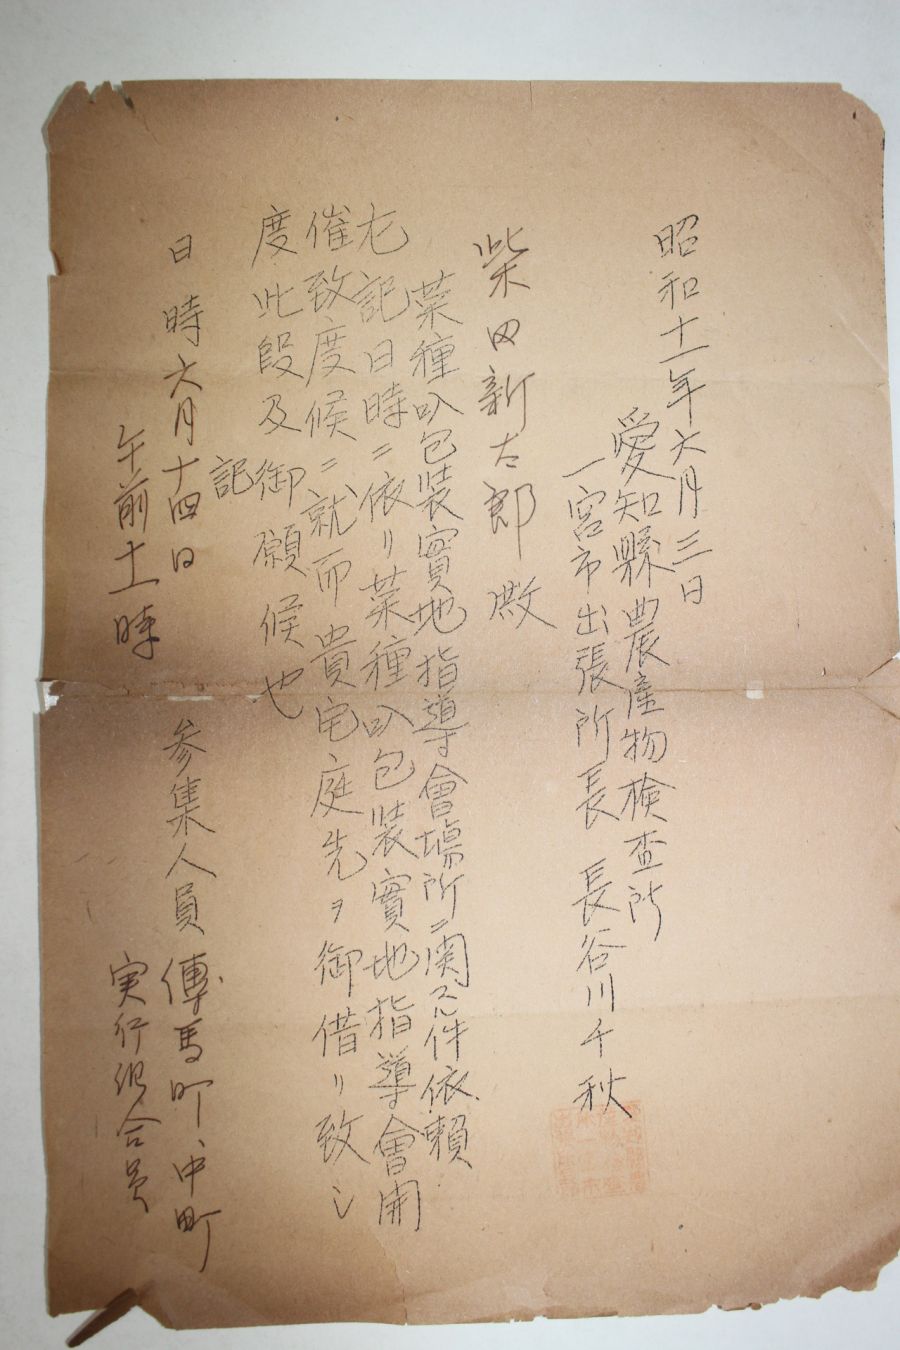 昭和十一年六月三日
愛知縣農産物検査所
一宮市出張所長 長谷川千秋
柴田新太郎殿
菜種叺包装實地指導會場所ニ関スル件依頼
左記日時ニ依リ菜種叺包装實地指導會開
催致度候ニ就而貴宅庭先ヲ御借リ致シ
度此段及御願候也
記
日時六月十四日
午前十一時
参集人員 傳馬町、中町
実行組合員